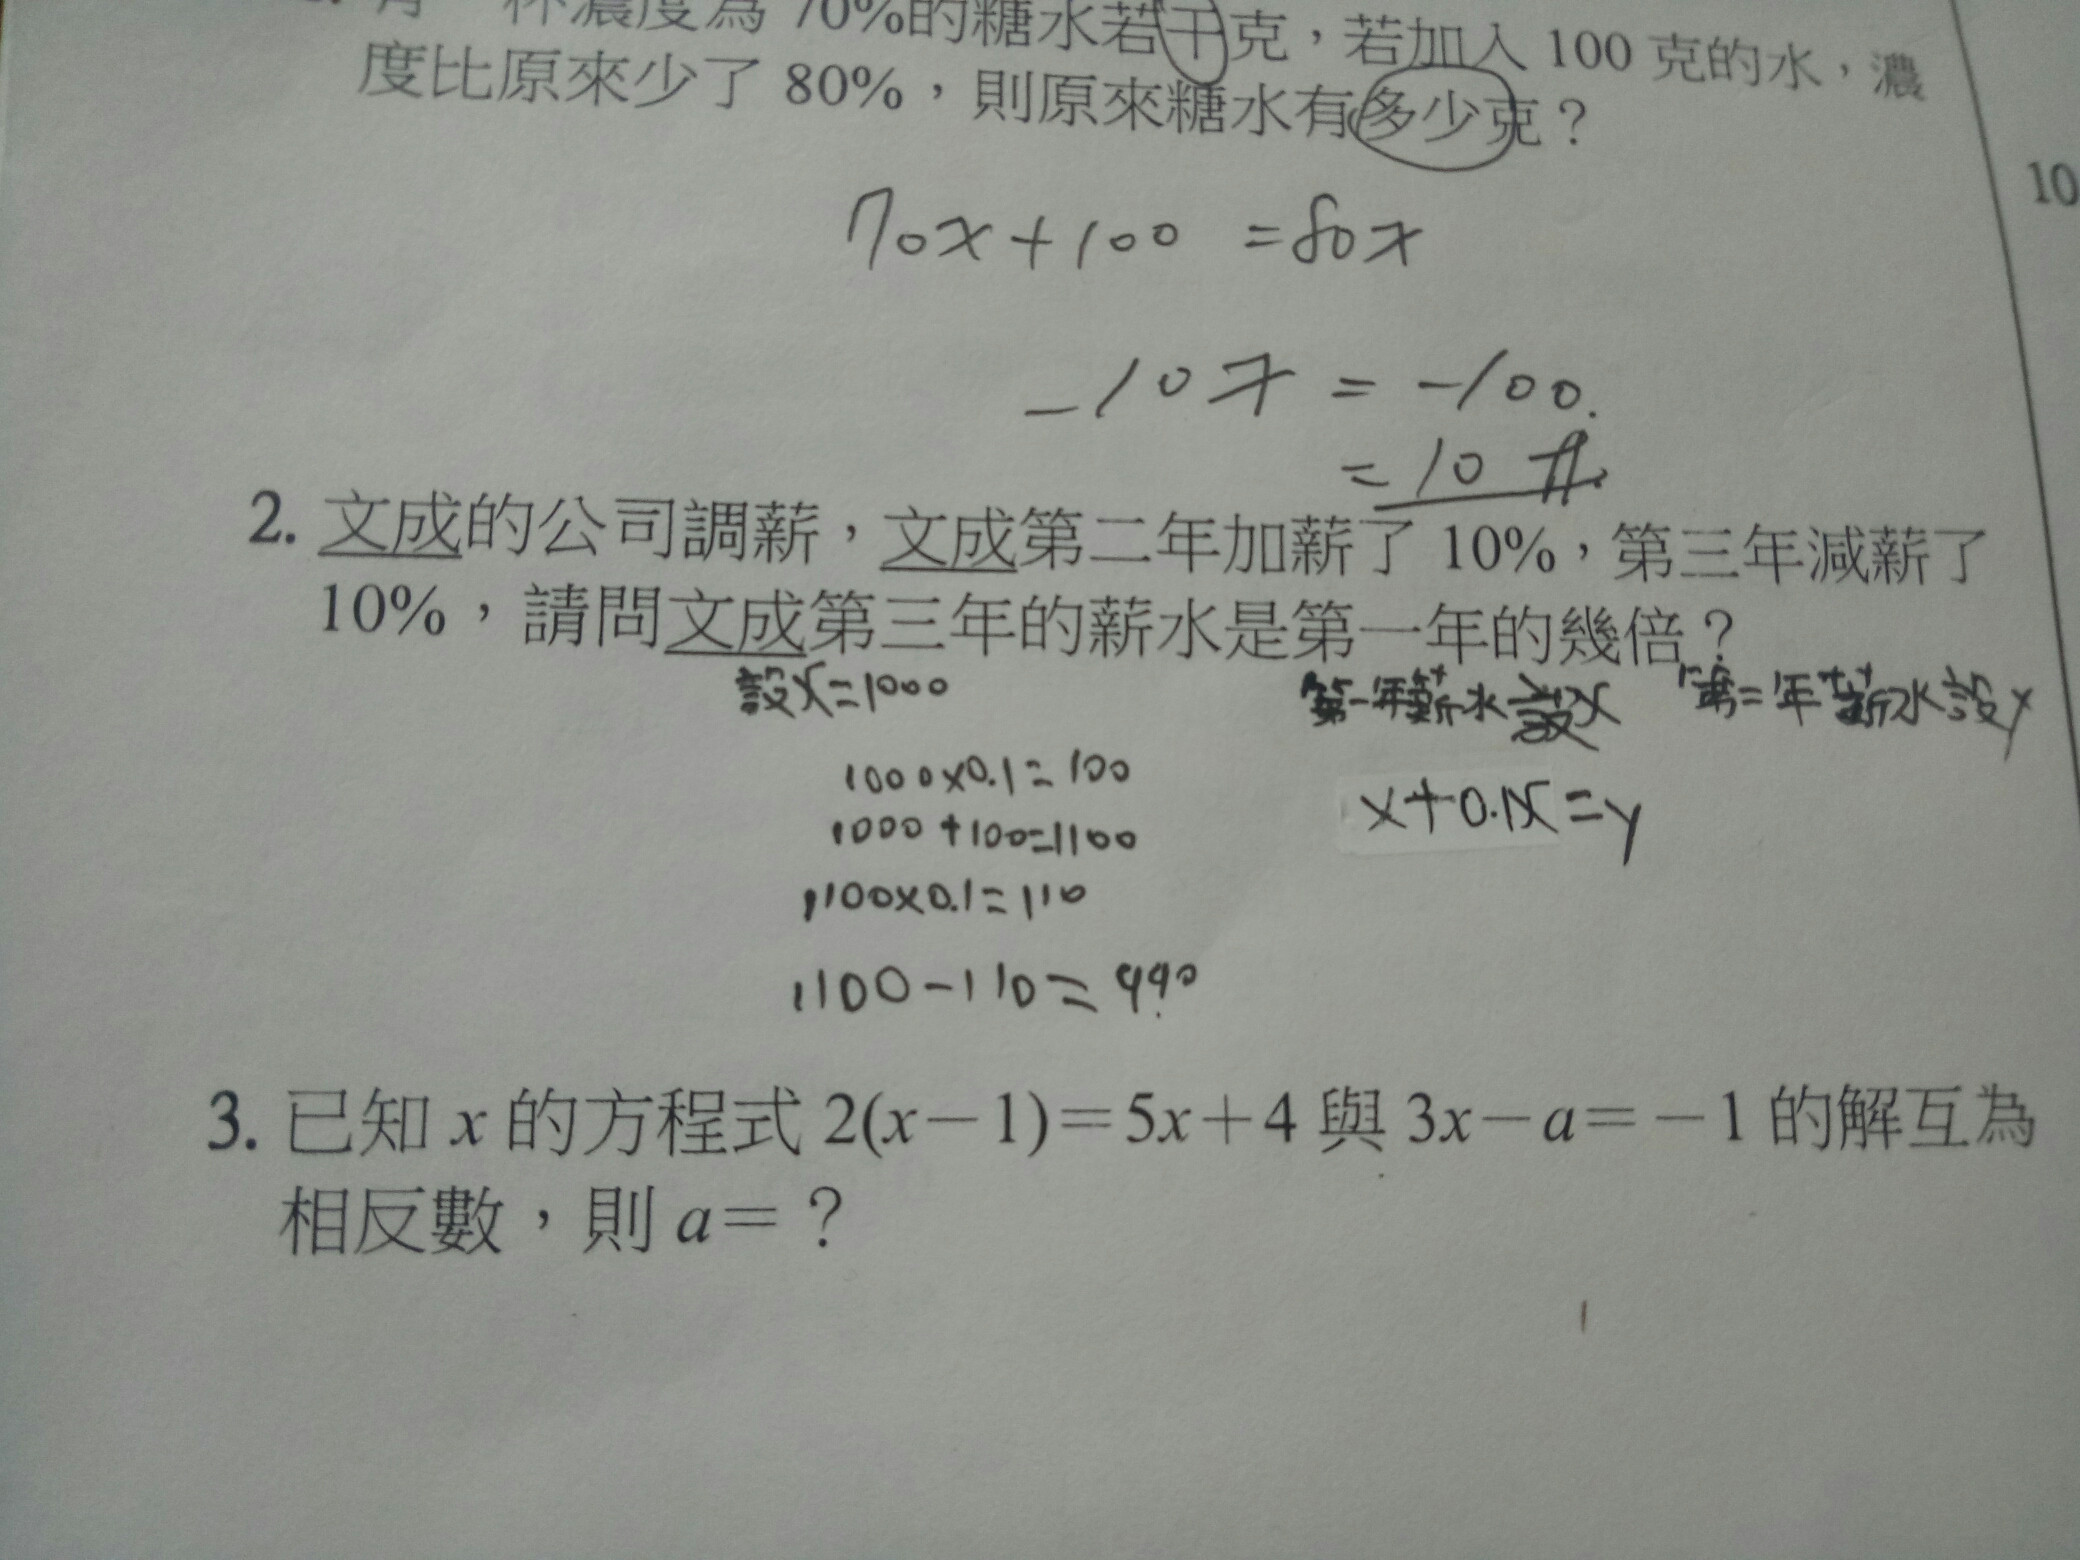 有一杯濃度為 70%的糖水若干克，若加入 100 克的水，濃
度比原來少了 80%，則原來糖水有多少克？
10
70x+100 =80x
-10x = -100.
= 10 #.
2. 文成的公司調薪，文成第二年加薪了 10%，第三年減薪了
10%，請問文成第三年的薪水是第一年的幾倍？
設x=1000
第一年薪水設x 第二年薪水設y
1000x0.1=100
x+0.1x=y
1000+100=1100
1100x0.1=110
1100-110=990
3. 已知 x 的方程式 2(x－1)＝5x＋4 與 3x－a＝－1 的解互為
相反數，則 a＝？